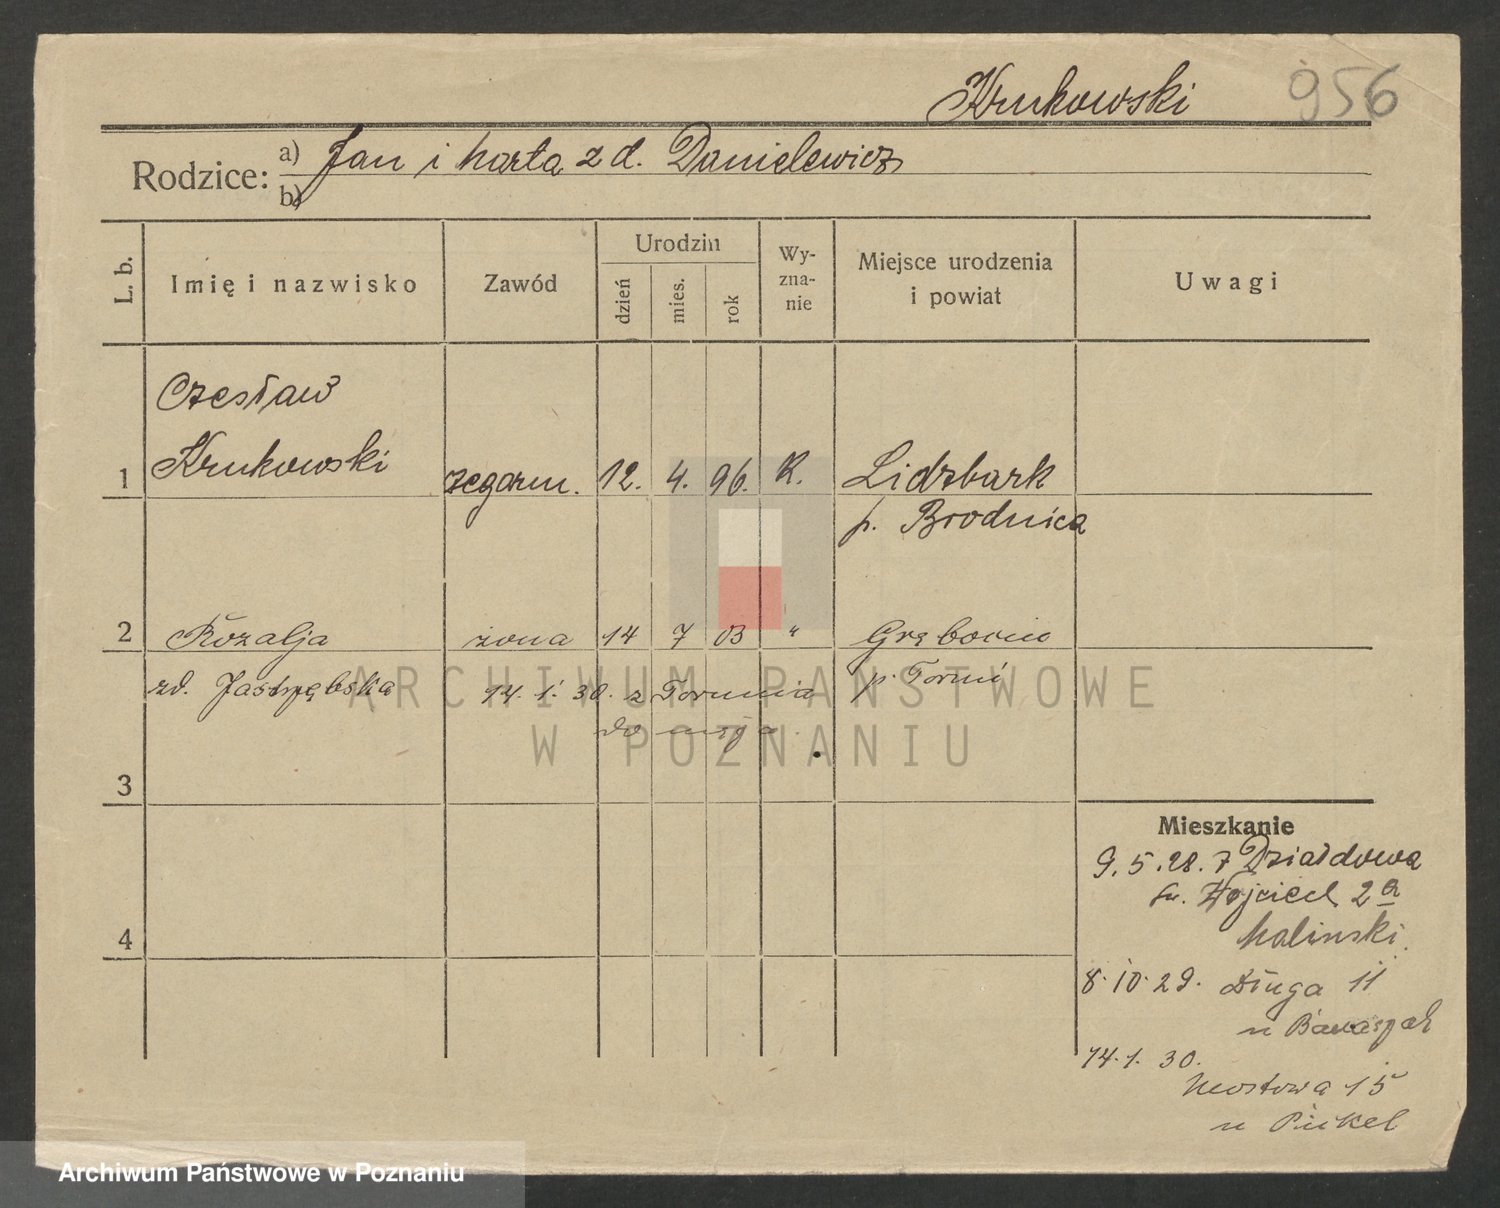 Krukowski 956
Rodzice: a) Jan i Marta z d. Danielewicz
b)
L. b.
Imię i nazwisko
Zawód
Urodzin
dzień
mies.
rok
Wy-
zna-
nie
Miejsce urodzenia
i powiat
Uwagi
Czesław
1 Krukowski zegarm. 12. 4. 96. R. Lidzbark
p. Brodnica
2 Rozalja żona 14 7 03 " Grębocin
zd. Jastrzębska 14. 1. 30. z Torunia p. Toruń
do męża
ARCHIWUM PAŃSTWOWE
W POZNANIU
3
4
Mieszkanie
9. 5. 28. z Działdowa
św. Wojciech 2a
Malinski.
8. 10. 29. Długa 11
u Banaszak
14. 1. 30.
Mostowa 15
u
Archiwum Państwowe w Poznaniu